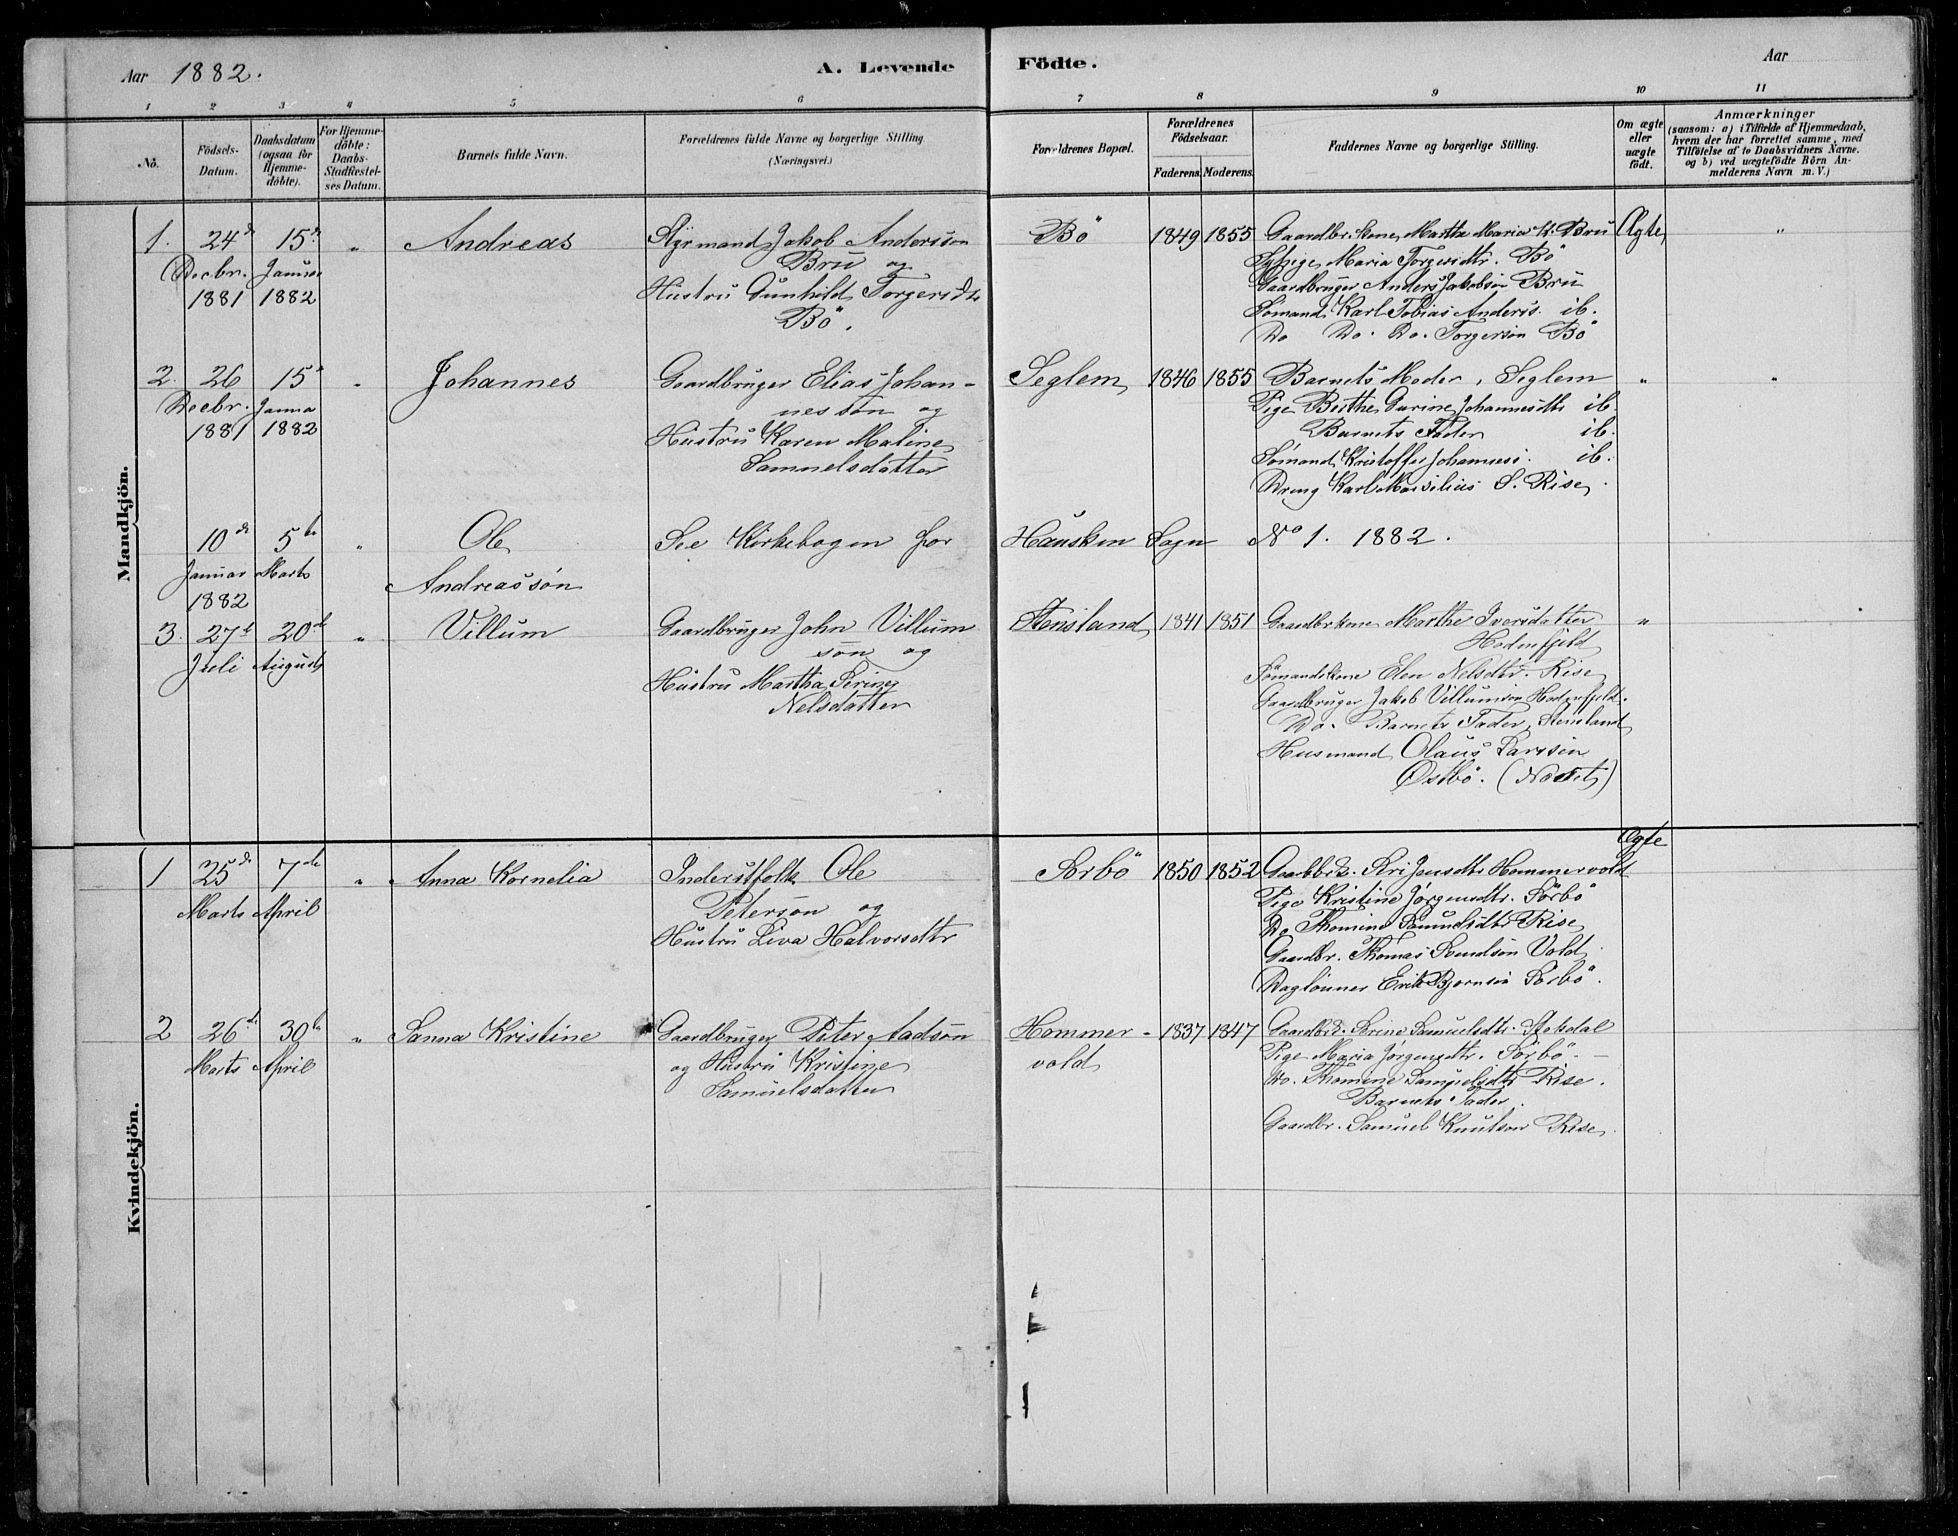 Aar 1882.
A. Levende Födte.
Aar
1 2 3 4 5 6 7 8 9 10 11
No.
Födsels-Datum.
Daabsdatum (ogsaa for Hjemmedöbte).
For Hjemmedöbte: Daabs-Stadfæstelses Datum.
Barnets fulde Navn.
Forældrenes fulde Navne og borgerlige Stilling (Næringsvei.)
Forældrenes Bopæl.
Forældrenes Födselsaar.
Faderens. Moderens.
Faddernes Navne og borgerlige Stilling.
Om ægte eller uægte födt.
Anmærkninger
(saasom: a) i Tilfælde af Hjemmedaab, hvem der har forrettet samme, med Tilföielse af to Daabsvidners Navne. og b) ved uægtefödte Börn Anmelderens Navn m. V.)
Mandkjön.
1. 24de Decbr. 1881
15de Januar 1882
"
Andreas
Styrmand Jakob Andersson
Bru og
Hustru Gunhild Torgersdtr
Bö.
Bö
1849 1855
Gaardbr. kone Marthe Maria K. Bru
Sypige Maria Torgersdtr. Bö
Gaardbruger Anders Jakobsen Bru
Sömand Karl Tobias Anders. ib.
Do Do. Do. Torgerson Bö
Ægte
"
2. 26 Decbr. 1881
15de Janua 1882
"
Johannes
Gaardbruger Elias Johan-
nesson og
Hustru Karen Maline
Samuelsdatter
Seglem
1846 1855
Barnets Moder, Seglem
Pige Berthe Gurine Johannesdtr ib.
Barnets Fader ib.
Sömand Kristoffer Johanness. ib.
Dreng Karl S. Rise.
"
"
10de Januar 1882
5te Marts
"
Ole
Andreassön
See Kirkebogen for
Hausken Sogn No 1. 1882.
3. 27de Juli
20de August
"
Villum
Gaardbruger John Villum
son og
Hustru Martha Serine
Nelsdatter
Stensland
1841 1851
Gaardbrkone Marthe Iversdatter
Hodnefjeld
Sömandskone Elen Nelsdtr. Rise
Gaardbruger Jakob Villumson Hodnefjeld.
Do. Barnets Fader, Stensland
Husmand Olaus Larssen
Østbö.
"
Kvindekjön.
1 25de Marts
7de April
"
Anna Kornelia
Inderstfolk Ole
Peterson og
Hustru Liva Halvorsdtr
Sörbö
1850 1852
Gaardbrk. Siri Jensdtr Hommervold
Pige Kristine Jörgensdtr. Sörbö
Do Thomine Samuelsdtr Rise
Gaardbr. Thomas Knudsön Vold
Daglönner Erik Bjornsen Sörbö.
Ægte
2 26de Marts
30te April
"
Sanna Kristine
Gaardbruger Peter Aadsön
og Hustru Kristine
Samuelsdatter
Hommer-
vold
1837 1847
Gaardbrk. Serine Samuelsdtr.
Pige Maria Jörgensdtr. Sörbö.
Do. Thomine Samuelsdtr Rise.
Barnets Fader.
Gaardbr. Samuel Knutson Rise.